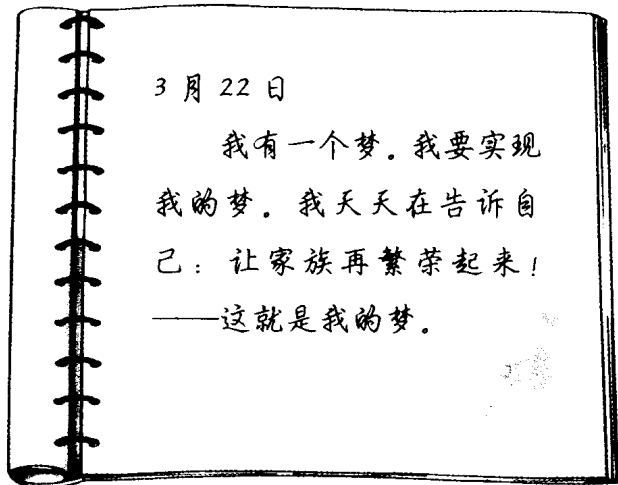 3月22日
我有一个梦。我要实现
我的梦。我天天在告诉自
己：让家族再繁荣起来！
——这就是我的梦。